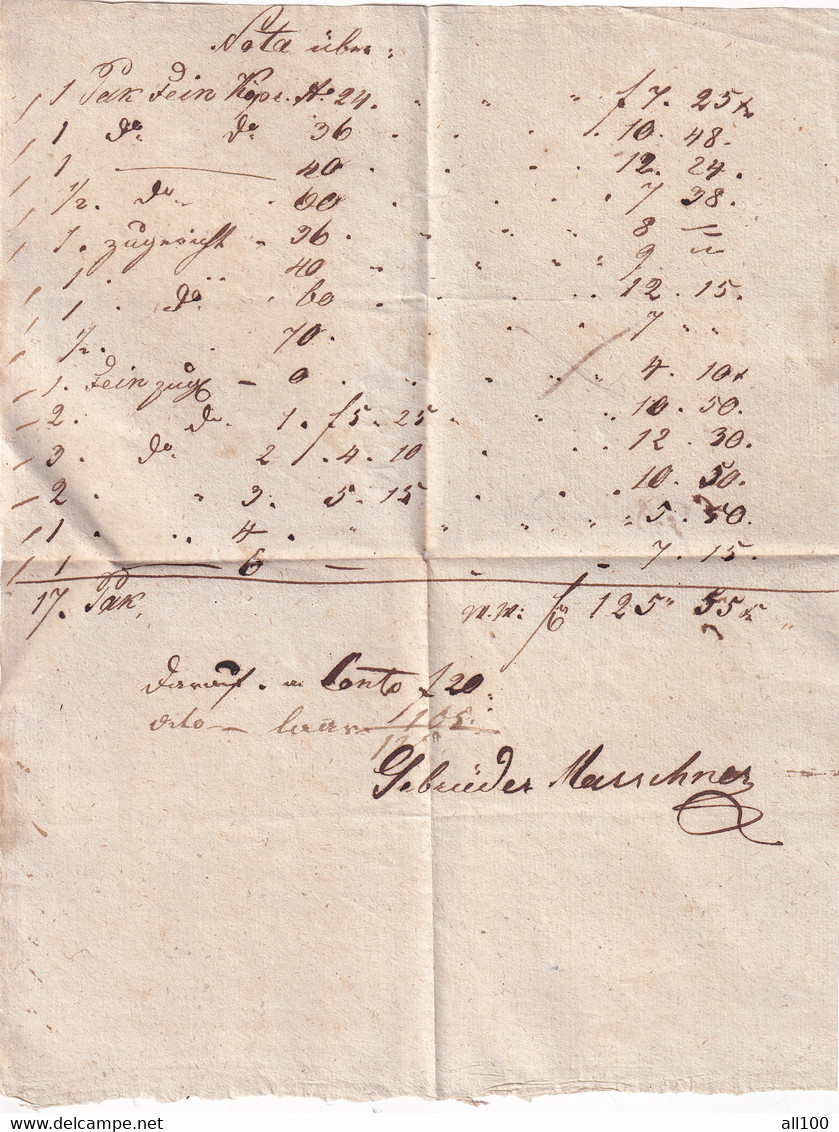 Nota über
1 Pak Fein No. 24. f 7. 25 x
1 do. do. 36 10. 48.
1 — 40 12. 24.
1/2. do. 60 7 38.
1. zugericht - 36. 8 —
1. 40 9 "
1. do. 60 12. 15.
1/2. 70. 7 " "
1. Fein zug - 0 4. 10 x
2. do. 1. f 5. 25 10. 50.
3. do. 2. 4. 10 12. 30.
2. " 3. 5. 15 10. 30.
1. 4. 5. 50.
1 — 6 — 7. 15.
17. Pak, W.W: f 125" 55 x
darauf. a Conto f 20
dto — baar 105.
Gebrüder Marschner
all100